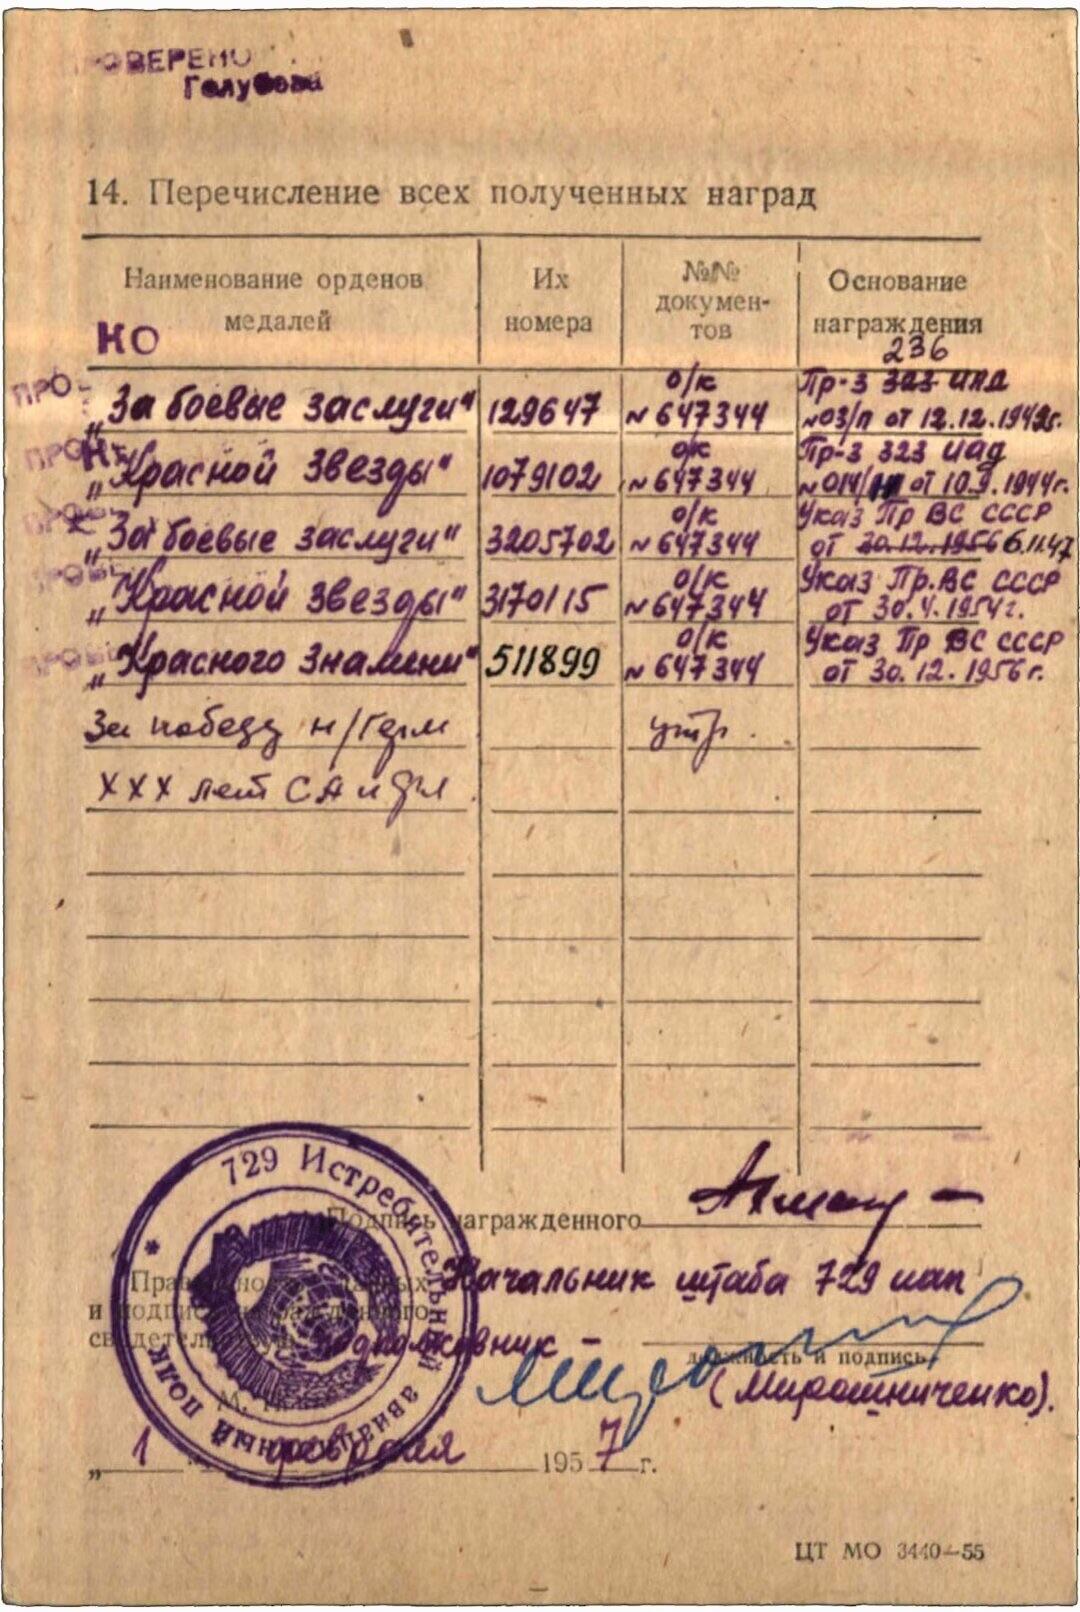 ПРОВЕРЕНО
Голубова
14. Перечисление всех полученных наград
Наименование орденов медалей
Их номера
№№ документов
Основание награждения
НО
236
"За боевые заслуги" 129647 о/к №647344 Пр-з 323 иад №03/п от 12.12.1942г.
"Красной Звезды" 1079102 о/к №647344 Пр-з 323 иад №014/ от 10.9.1944г.
"За боевые заслуги" 3205702 о/к №647344 Указ Пр ВС СССР от 30.12.1956 6.11.47
"Красной Звезды" 3170115 о/к №647344 Указ Пр.ВС СССР от 30.4.1954г.
"Красного Знамени" 511899 о/к №647344 Указ Пр ВС СССР от 30.12.1956г.
За победу н/Герм утр.
XXX лет СА и
Подпись награжденного
Начальник штаба 729 иап
и подпись награжденного
подполковник -
должность и подпись
(Мирошниченко).
М.
729 Истребительный авиационный полк
"1" февраля 1957 г.
ЦТ МО 3440—55